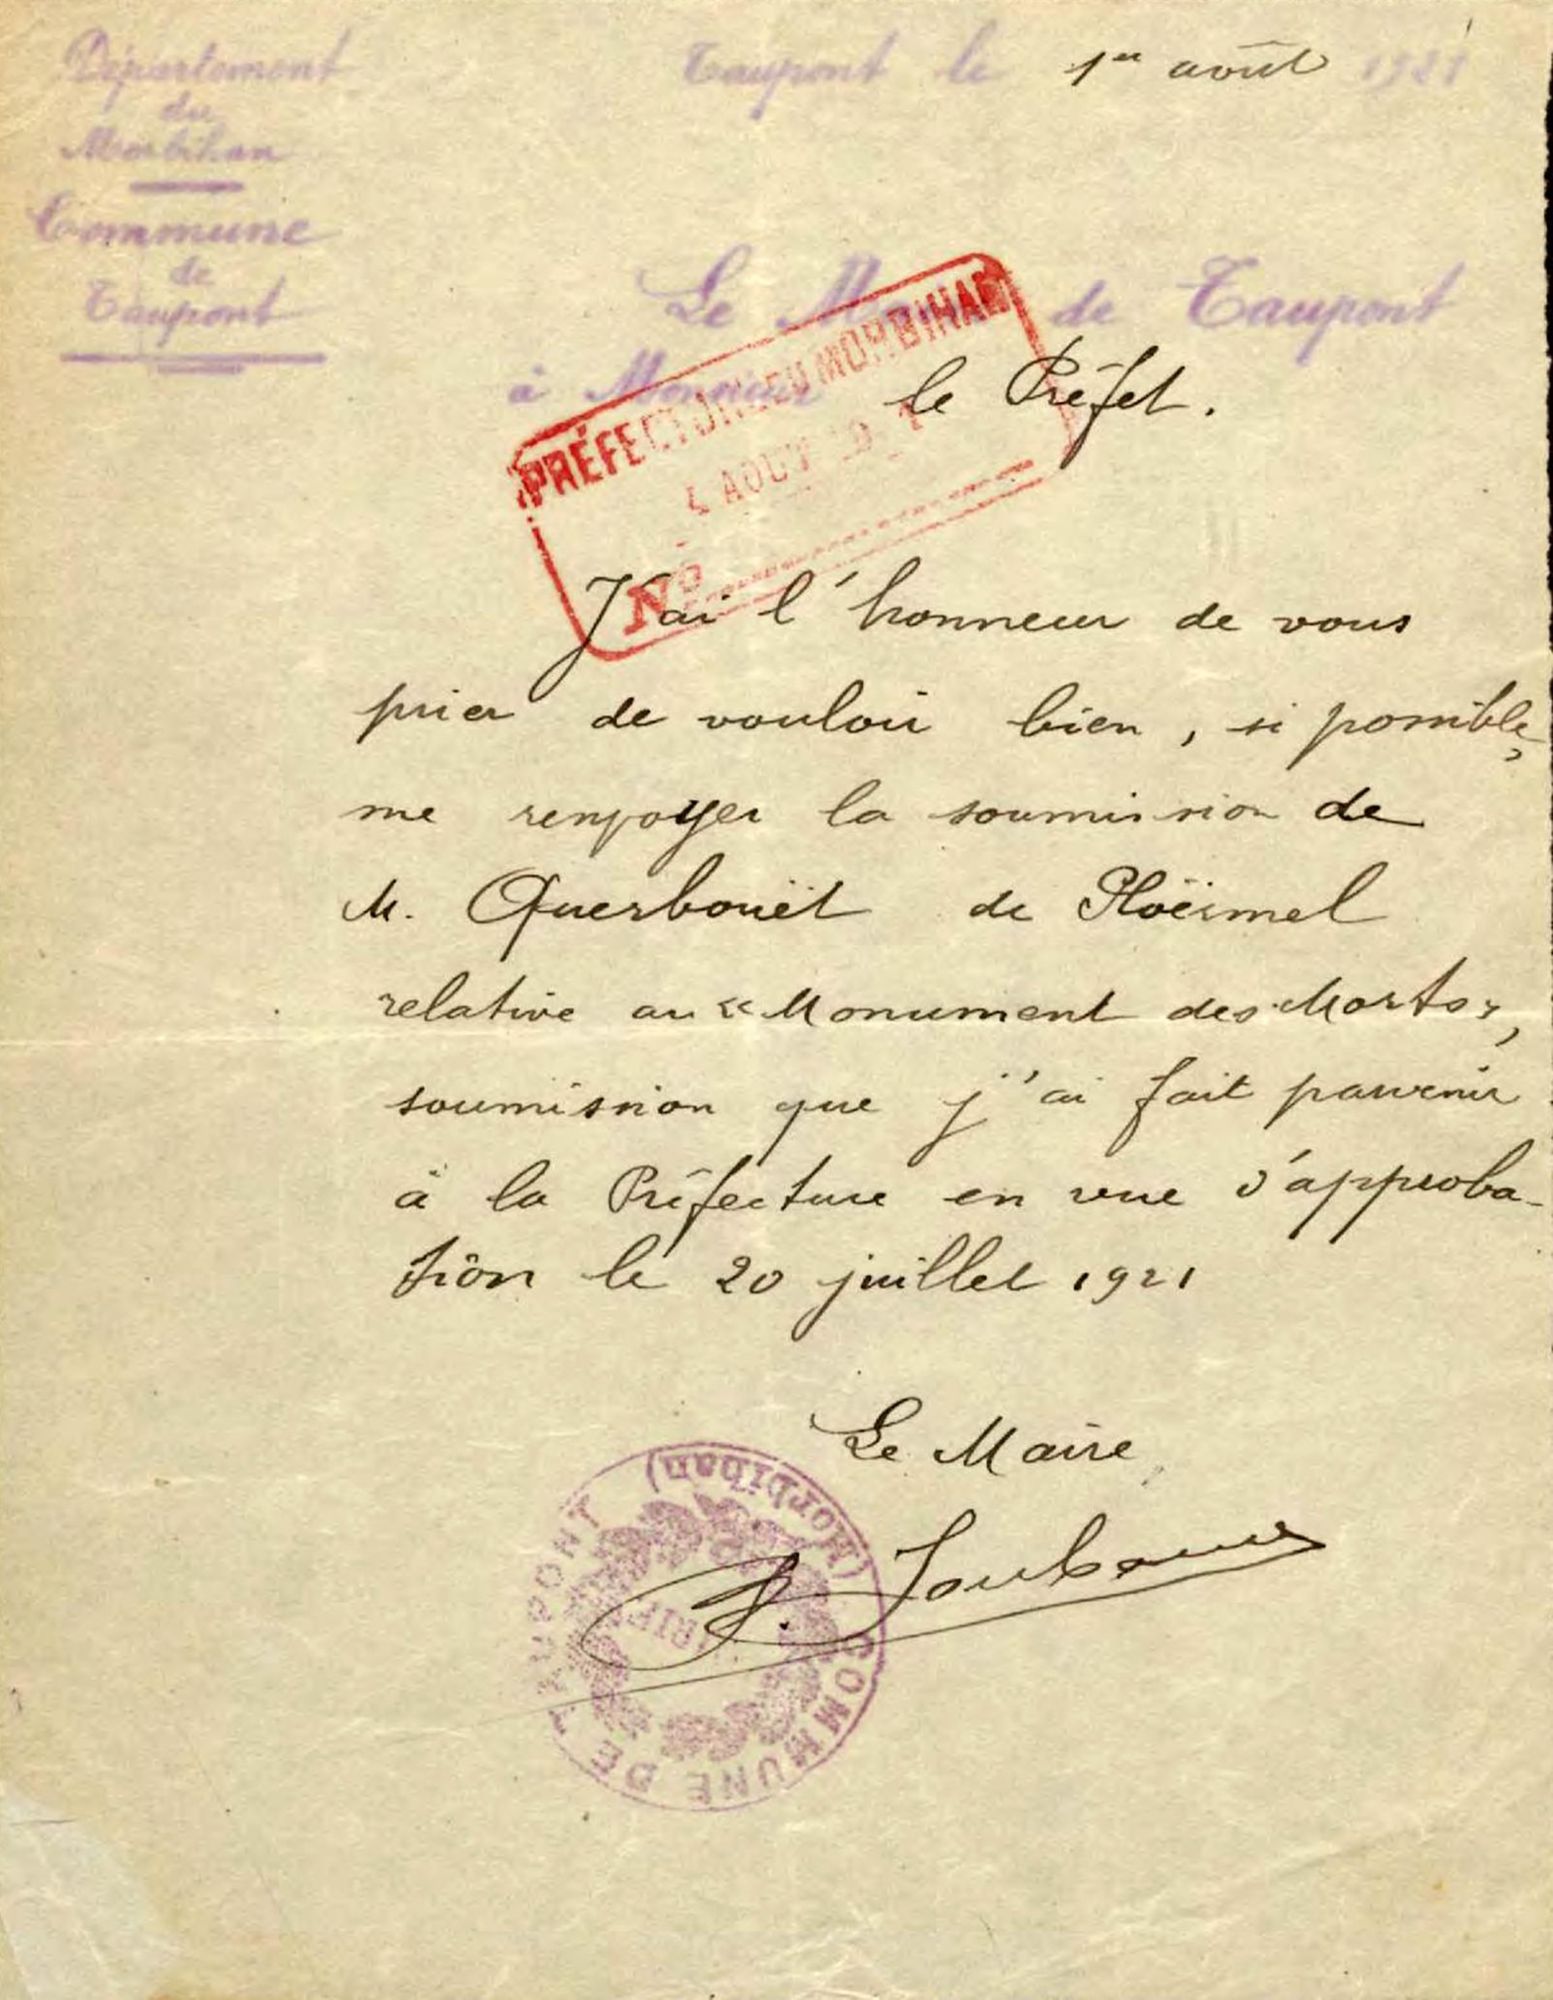 Département
du
Morbihan
Commune
de
Taupont
Taupont le 1er août 1921
Le Maire de Taupont
à Monsieur le Préfet.
PRÉFECTURE DU MORBIHAN
4 AOUT 1921
No
J'ai l'honneur de vous
prier de vouloir bien, si possible,
me renvoyer la soumission de
M. Querbouët de Ploërmel
relative au « Monument des Morts »,
soumission que j'ai fait parvenir
à la Préfecture en vue d'approba-
tion le 20 juillet 1921
Le Maire
COMMUNE DE TAUPONT (Morbihan)
MAIRIE